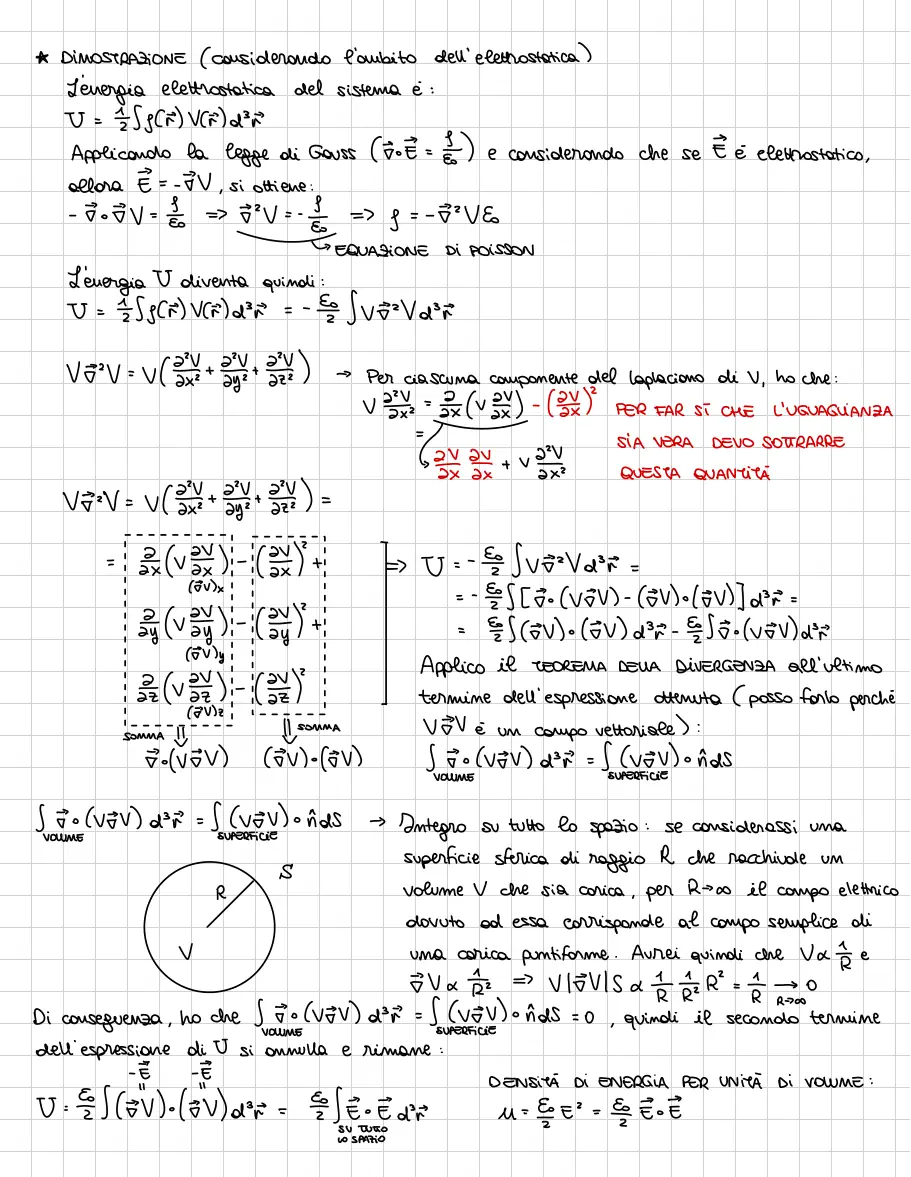 ★ DIMOSTRAZIONE (considerando l'ambito dell'elettrostatica)
L'energia elettrostatica del sistema è:
U = ½∫ρ(r⃗) V(r⃗) d³r⃗
Applicando la legge di Gauss (∇⃗∘E⃗ = ρ/ε₀) e considerando che se E⃗ è elettrostatico,
allora E⃗ = -∇⃗V, si ottiene:
-∇⃗∘∇⃗V = ρ/ε₀ => ∇⃗²V = -ρ/ε₀ => ρ = -∇⃗²Vε₀
↳ EQUAZIONE DI POISSON
L'energia U diventa quindi:
U = ½∫ρ(r⃗) V(r⃗) d³r⃗ = -ε₀/2 ∫V∇⃗²V d³r⃗
V∇⃗²V = V(∂²V/∂x² + ∂²V/∂y² + ∂²V/∂z²) → Per ciascuna componente del laplaciano di V, ho che:
V ∂²V/∂x² = ∂/∂x (V ∂V/∂x) - (∂V/∂x)² PER FAR SÌ CHE L'UGUAGLIANZA
= SIA VERA DEVO SOTTRARRE
↳ ∂V/∂x ∂V/∂x + V ∂²V/∂x² QUESTA QUANTITÀ
V∇⃗²V = V(∂²V/∂x² + ∂²V/∂y² + ∂²V/∂z²) =
= ∂/∂x (V ∂V/∂x) - (∂V/∂x)² +
(∇⃗V)x
∂/∂y (V ∂V/∂y) - (∂V/∂y)² +
(∇⃗V)y
∂/∂z (V ∂V/∂z) - (∂V/∂z)²
(∇⃗V)z
SOMMA ⇓ ⇓ SOMMA
∇⃗∘(V∇⃗V) (∇⃗V)∘(∇⃗V)
=> U = -ε₀/2 ∫V∇⃗²V d³r⃗ =
= -ε₀/2 ∫[∇⃗∘(V∇⃗V) - (∇⃗V)∘(∇⃗V)] d³r⃗ =
= ε₀/2 ∫(∇⃗V)∘(∇⃗V) d³r⃗ - ε₀/2 ∫∇⃗∘(V∇⃗V) d³r⃗
Applico il TEOREMA DELLA DIVERGENZA all'ultimo
termine dell'espressione ottenuta (posso farlo perché
V∇⃗V è un campo vettoriale):
∫ ∇⃗∘(V∇⃗V) d³r⃗ = ∫ (V∇⃗V)∘n̂dS
VOLUME SUPERFICIE
∫ ∇⃗∘(V∇⃗V) d³r⃗ = ∫ (V∇⃗V)∘n̂dS → Integro su tutto lo spazio: se considerassi una
VOLUME SUPERFICIE
superficie sferica di raggio R che racchiude un
volume V che sia carica, per R→∞ il campo elettrico
dovuto ad essa corrisponde al campo semplice di
una carica puntiforme. Avrei quindi che V∝ 1/R e
∇⃗V ∝ 1/R² => V|∇⃗V|S ∝ 1/R 1/R² R² = 1/R → 0
R→∞
S
R
V
Di conseguenza, ho che ∫ ∇⃗∘(V∇⃗V) d³r⃗ = ∫ (V∇⃗V)∘n̂dS = 0, quindi il secondo termine
VOLUME SUPERFICIE
dell'espressione di U si annulla e rimane:
-E⃗ -E⃗
= =
U = ε₀/2 ∫(∇⃗V)∘(∇⃗V) d³r⃗ = ε₀/2 ∫E⃗∘E⃗ d³r⃗
SU TUTTO
LO SPAZIO
DENSITÀ DI ENERGIA PER UNITÀ DI VOLUME:
u = ε₀/2 E² = ε₀/2 E⃗∘E⃗